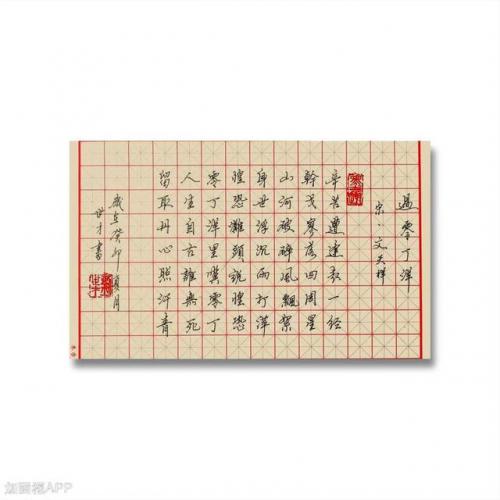 過零丁洋
宋、文天祥
辛苦遭逢起一經
幹戈寥落四周星
山河破碎風飄絮
身世浮沉雨打萍
惶恐灘頭說惶恐
零丁洋里嘆零丁
人生自古誰無死
留取丹心照汗青
歲在癸卯夏月
世才書
APP